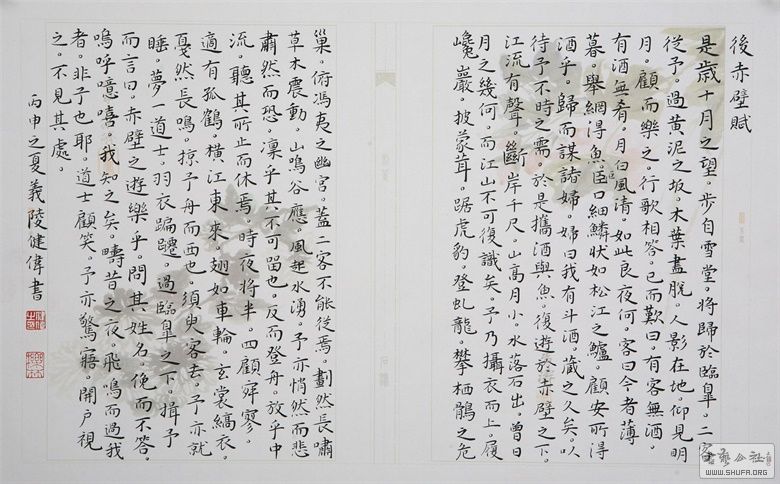 後赤壁賦
是歲十月之望。步自雪堂。將歸於臨臯。二客
從予。過黃泥之坂。木葉盡脫。人影在地。仰見明
月。顧而樂之。行歌相答。已而歎曰有客無酒。
有酒無肴。月白風清。如此良夜何。客曰今者薄
暮。舉網得魚。巨口細鱗狀如松江之鱸。顧安所得
酒乎。歸而謀諸婦。婦曰我有斗酒。藏之久矣。以
待予不時之需。於是攜酒與魚。復遊於赤壁之下。
江流有聲。斷岸千尺。山高月小。水落石出。曾日
月之幾何。而江山不可復識矣。予乃攝衣而上。履
巉巖。披蒙茸。踞虎豹。登虬龍。攀栖鶻之危
巢。俯馮夷之幽宮。蓋二客不能從焉。劃然長嘯
草木震動。山鳴谷應。風起水湧。予亦悄然而悲
肅然而恐。凜乎其不可留也。反而登舟。放乎中
流。聽其所止而休焉。時夜將半。四顧寂寥。
適有孤鶴。橫江東來。翅如車輪。玄裳縞衣。
戛然長鳴。掠予舟而西也。須臾客去。予亦就
睡。夢一道士。羽衣蹁躚。過臨臯之下。揖予
而言曰。赤壁之遊樂乎。問其姓名。俛而不答。
嗚呼噫嘻。我知之矣。疇昔之夜。飛鳴而過我
者。非子也耶。道士顧笑。予亦驚寤。開戶視
之。不見其處。
丙申之夏義陵健偉書
WWW.SHUFA.ORG